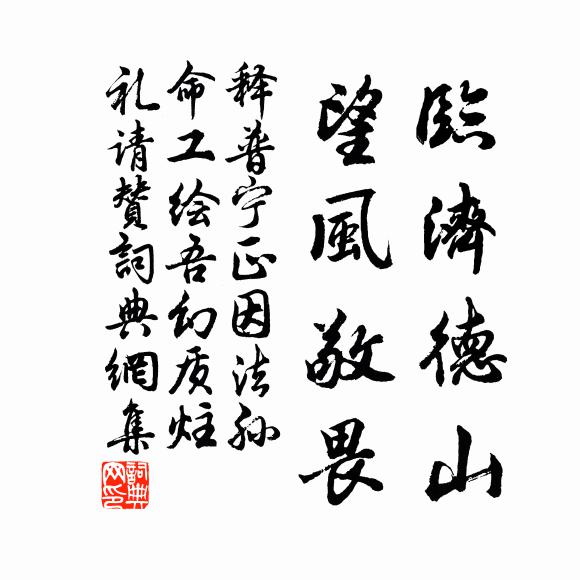 臨濟德山
望風敬畏
释普宁正因法孙
命工绘吾幻质炷
礼请赞詞典網集
詞典网印